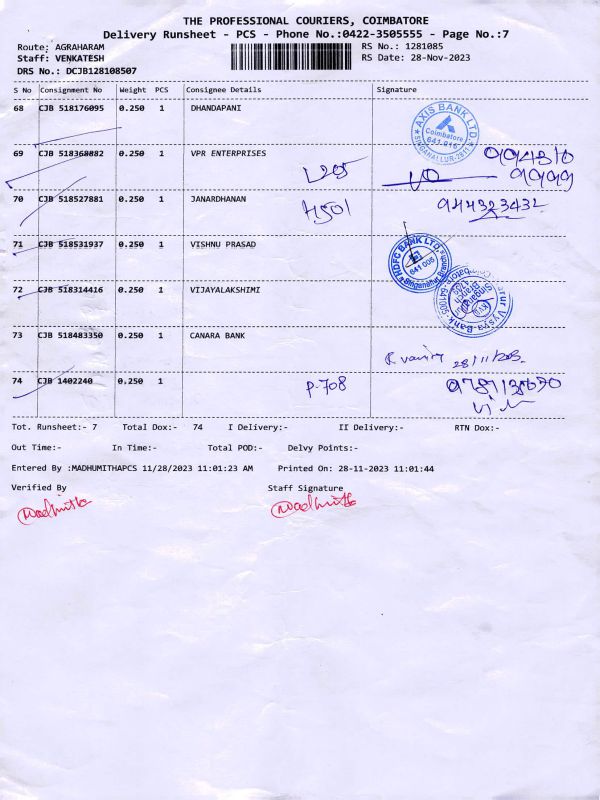 THE PROFESSIONAL COURIERS, COIMBATORE
Delivery Runsheet - PCS - Phone No.:0422-3505555 - Page No.:7
Route: AGRAHARAM RS No.: 1281085
Staff: VENKATESH RS Date: 28-Nov-2023
DRS No.: DCJB128108507
S No Consignment No Weight PCS Consignee Details Signature
68 CJB 518176095 0.250 1 DHANDAPANI
AXIS BANK LTD.
Coimbatore
641.016
69 CJB 518368882 0.250 1 VPR ENTERPRISES
70 CJB 518527881 0.250 1 JANARDHANAN 944323432
71 CJB 518531937 0.250 1 VISHNU PRASAD
HDFC BANK LTD.
641 005
72 CJB 518314416 0.250 1 VIJAYALAKSHIMI
73 CJB 518483350 0.250 1 CANARA BANK
74 CJB 1402240 0.250 1 P-708
Tot. Runsheet:- 7 Total Dox:- 74 I Delivery:- II Delivery:- RTN Dox:-
Out Time:- In Time:- Total POD:- Delvy Points:-
Entered By :MADHUMITHAPCS 11/28/2023 11:01:23 AM Printed On: 28-11-2023 11:01:44
Verified By Staff Signature